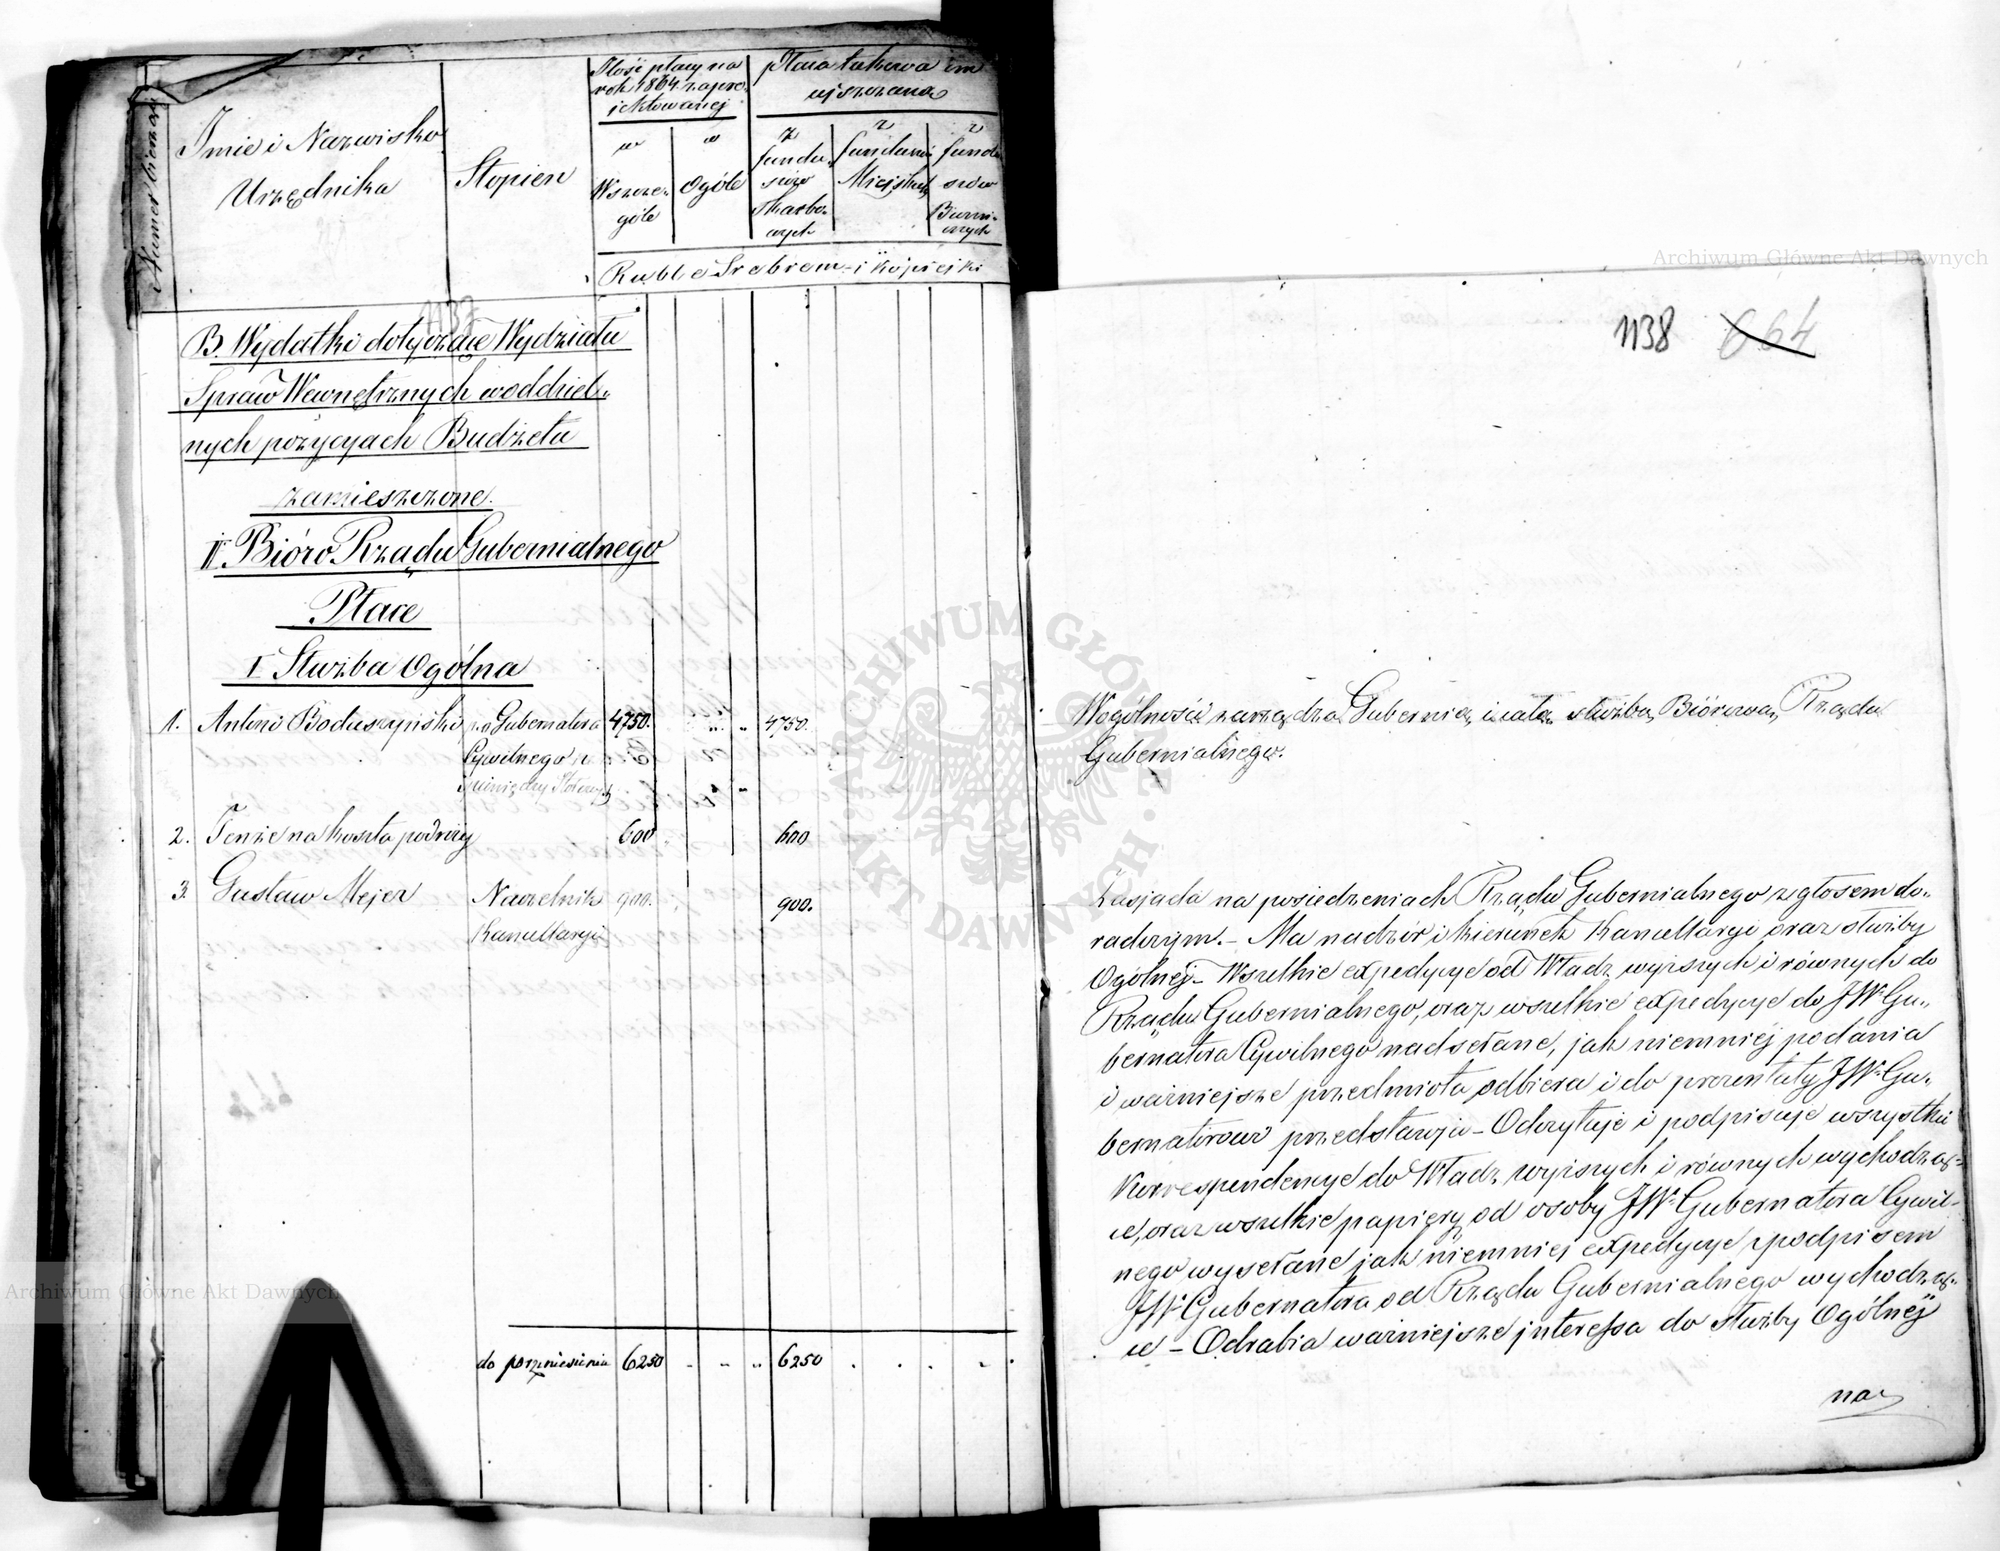 Numer bieżący
Imie i Nazwisko
Urzędnika
Stopień
Ilość płacy na
rok 1864 zapro-
jektowanej
w
Wszcze-
góle
w
Ogóle
Płaca takowa im
ujszczana
z
fundu-
szów
Skarbo-
wych
z
funduszów
Miejskich
z
fundu-
szów
Ruble Srebrem i kopiejki
B. Wydatki dotyczące Wydziału
Spraw Wewnętrznych w oddziel-
nych pozycyach Budżetu
zamieszczone.
II Bióro Rządu Gubernialnego
Płace
I Służba Ogólna
1. Antoni Boduszyński p.o. Gubernatora 4750. " " 4750.
Cywilnego
2. Tenże na koszta podróży 600 600
3. Gustaw Mejer Naczelnik 900. 900.
Kancellaryi
do przeniesienia 6250 - " " 6250 . . . .
1138 664
Wogólności zarządza Gubernią i całą służbą Biórową Rządu
Gubernialnego.
Zasiada na posiedzeniach Rządu Gubernialnego z głosem do-
radczym. – Ma nadzór i kierunek Kancellaryi oraz służby
Ogólnej – Wszelkie expedycye od Władz wyższych i równych do
Rządu Gubernialnego, oraz wszelkie expedycye do JW. Gu-
bernatora Cywilnego nadsełane, jak niemniéj podania
i ważniejsze przedmiota odbiera i do prezentaty JW. Gu-
bernatorowi przedstawia – Odczytuje i podpisuje wszystkie
Korrespondencye do Władz wyższych i równych wychodzą-
ce, oraz wszelkie papiery od osoby JW. Gubernatora Cywil-
nego wysełane jak niemniej expedycye z podpisem
JW. Gubernatora od Rządu Gubernialnego wychodzą-
ce – Odrabia ważniejsze interessa do służby Ogólnéj
na
Archiwum Główne Akt Dawnych
Archiwum Główne Akt Dawnych
ARCHIWUM GŁÓWNE AKT DAWNYCH